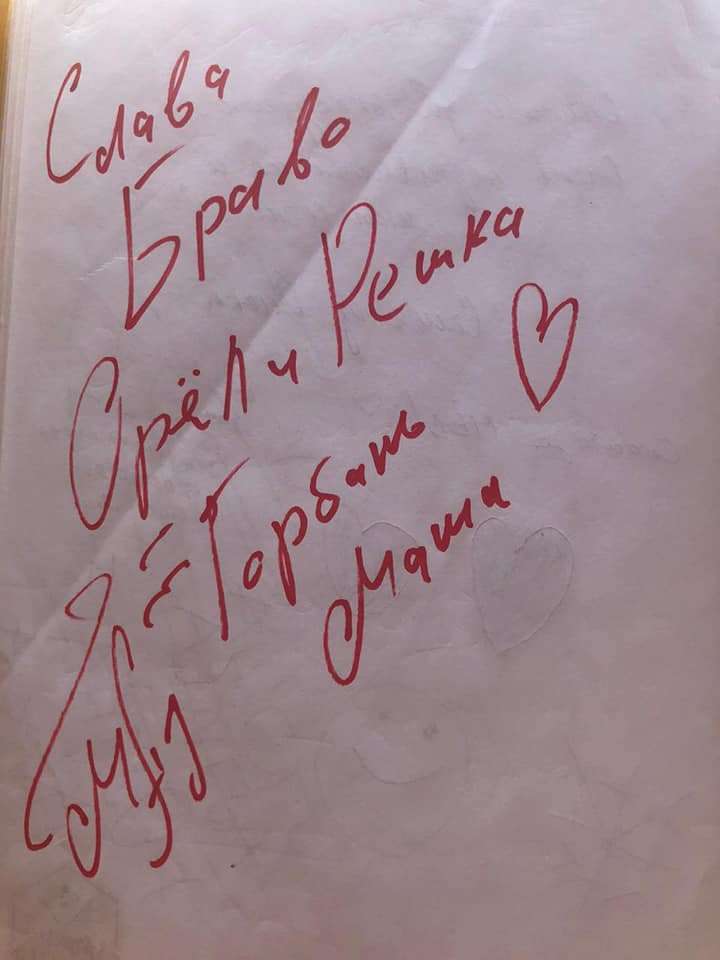 Слава
Браво
Орёл и Решка
Горбань
Маша